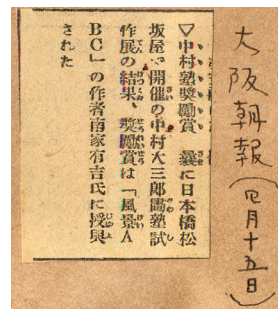 大阪朝報(四月十五日)
▽中村塾奬勵賞 曩に日本橋松
坂屋で開催の中村大三郎畫塾試
作展の結果、奬勵賞は「風景A
BC」の作者南家有吉氏に授與
された